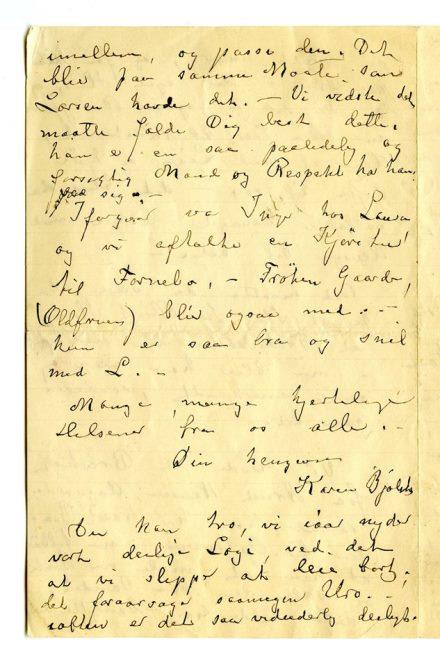 imellem, og passe den. Det
bliv paa samme Maate som
Larsen havde det. — Vi vidste det
maatte falde Dig best dette,
han er en saa paalidelig og
forsigtig Mand og Respekt har han
paa sig. —
Iforgaar va Inga hos Laura
og vi aftalte en Kjøretur
til Fornebo, — Frøken Gaarder,
(Oldfruen) bliv ogsaa med. —
hun er saa bra og snil
med L. —
Mange, mange hjertelige
Hilsener fra os alle. —
Din hengivne
Karen
Du kan tro, vi iaar nyder
vort deilige Logi, ved det
at vi slipper at leie bort.
det foraarsage saamegen Uro. —
er det saa vidunderlig deiligt.